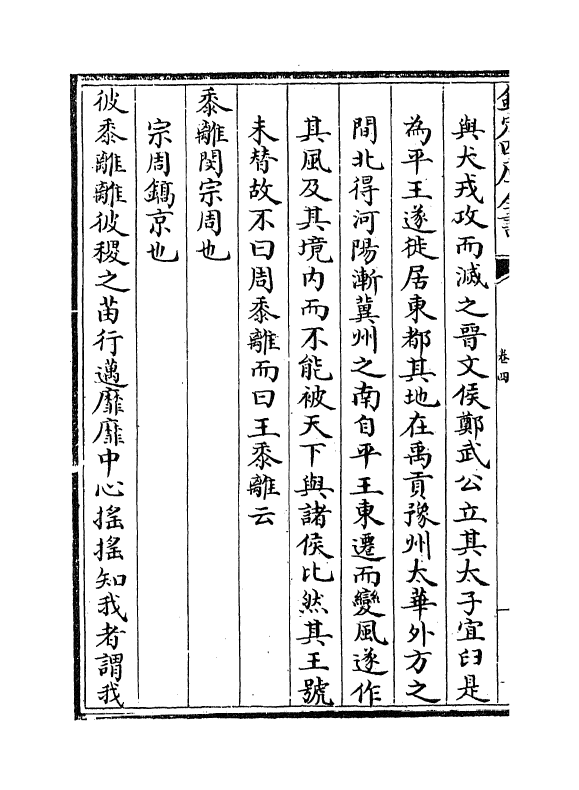 欽定四庫全書
卷四
與犬戎攻而滅之晉文侯鄭武公立其太子宜臼是
為平王遂徙居東都其地在禹貢豫州太華外方之
間北得河陽漸冀州之南自平王東遷而變風遂作
其風及其境内而不能被天下與諸侯比然其王號
未替故不曰周黍離而曰王黍離云
黍離閔宗周也
宗周鎬京也
彼黍離離彼稷之苗行邁靡靡中心搖搖知我者謂我